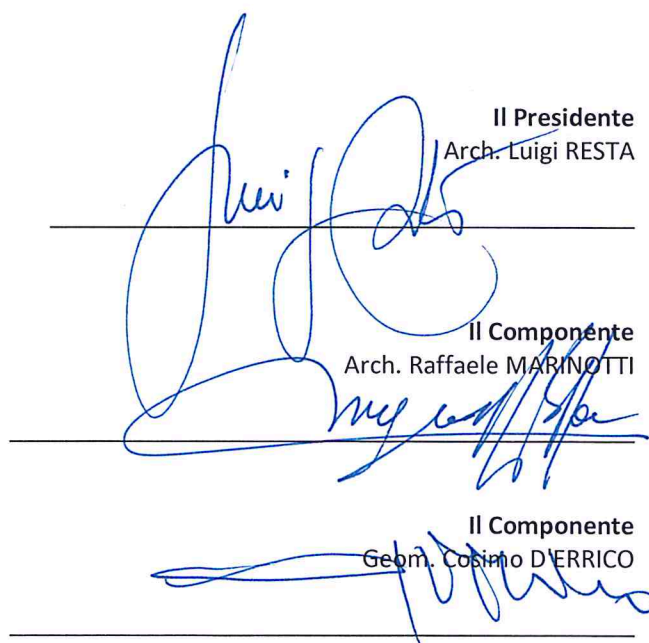 Il Presidente
Arch. Luigi RESTA
Il Componente
Arch. Raffaele MARINOTTI
Il Componente
Geom. Cosimo D'ERRICO